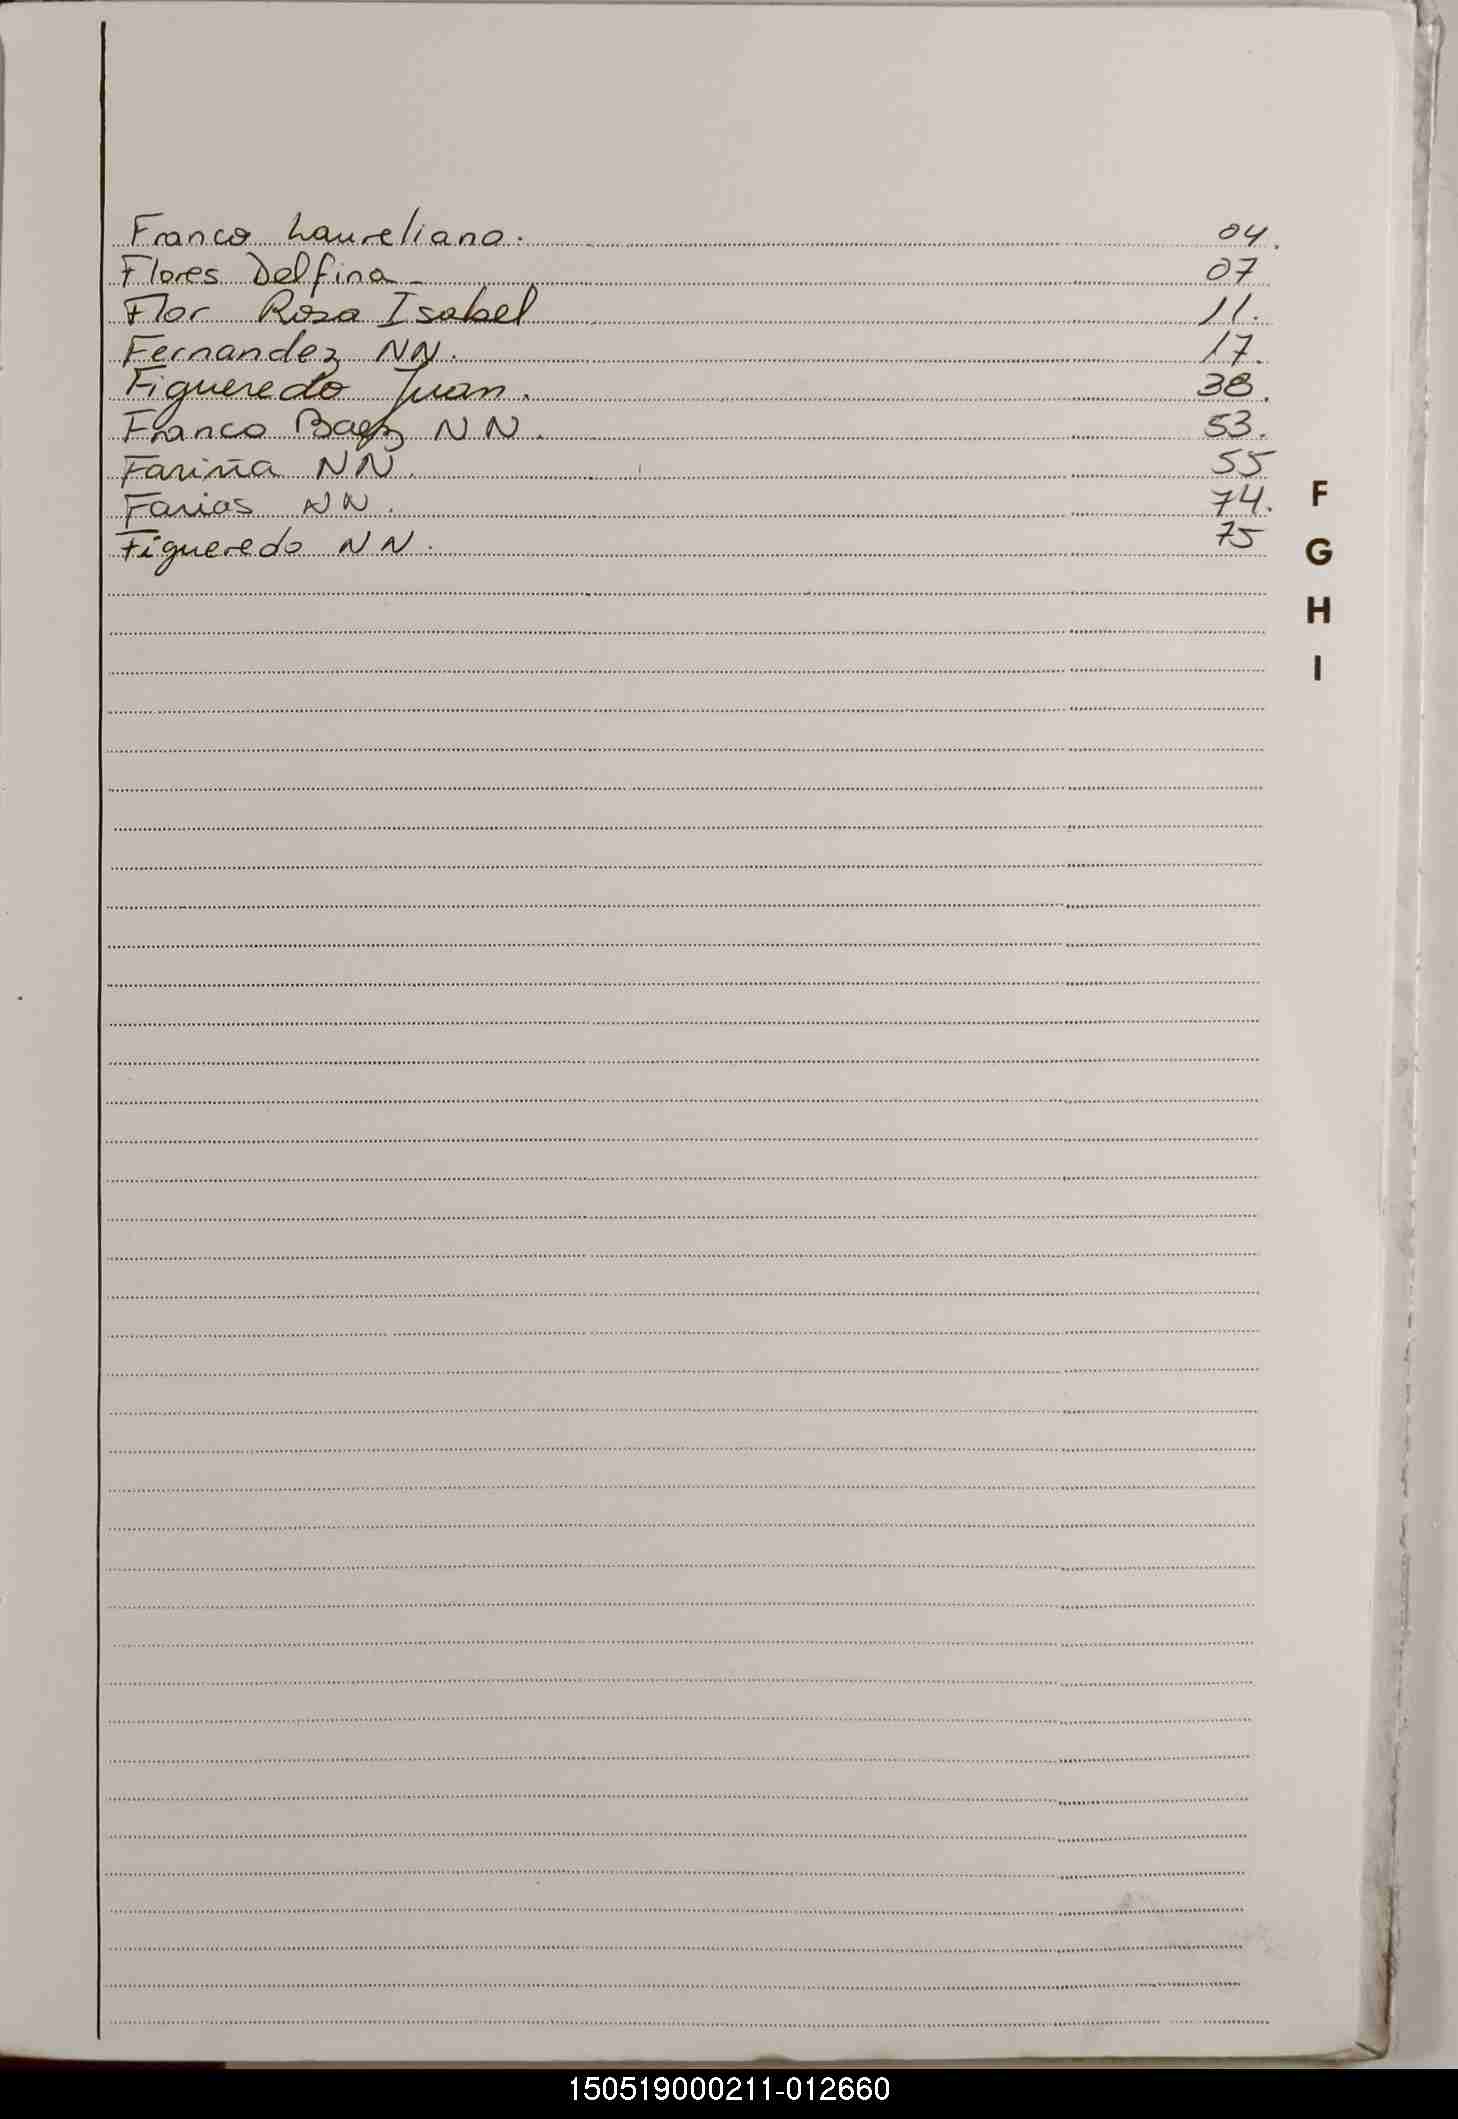 Franco Laureliano. 04.
Flores Delfina 07
Flor Rosa Isabel 11.
Fernandez NN. 17.
Figueredo Juan. 38.
Franco Baez NN. 53.
Fariña NN. 55
Farias NN. 74.
Figueredo NN. 75
F
G
H
I
150519000211-012660